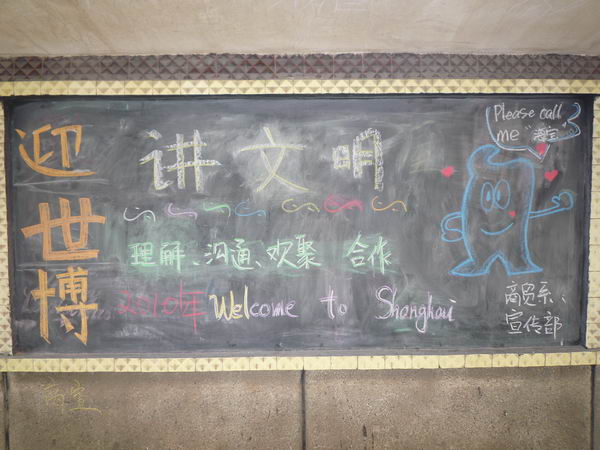 迎世博
讲文明
理解、沟通、欢聚 合作
2010年 Welcome to Shanghai
Please call
me "海宝"
商贸系、
宣传部